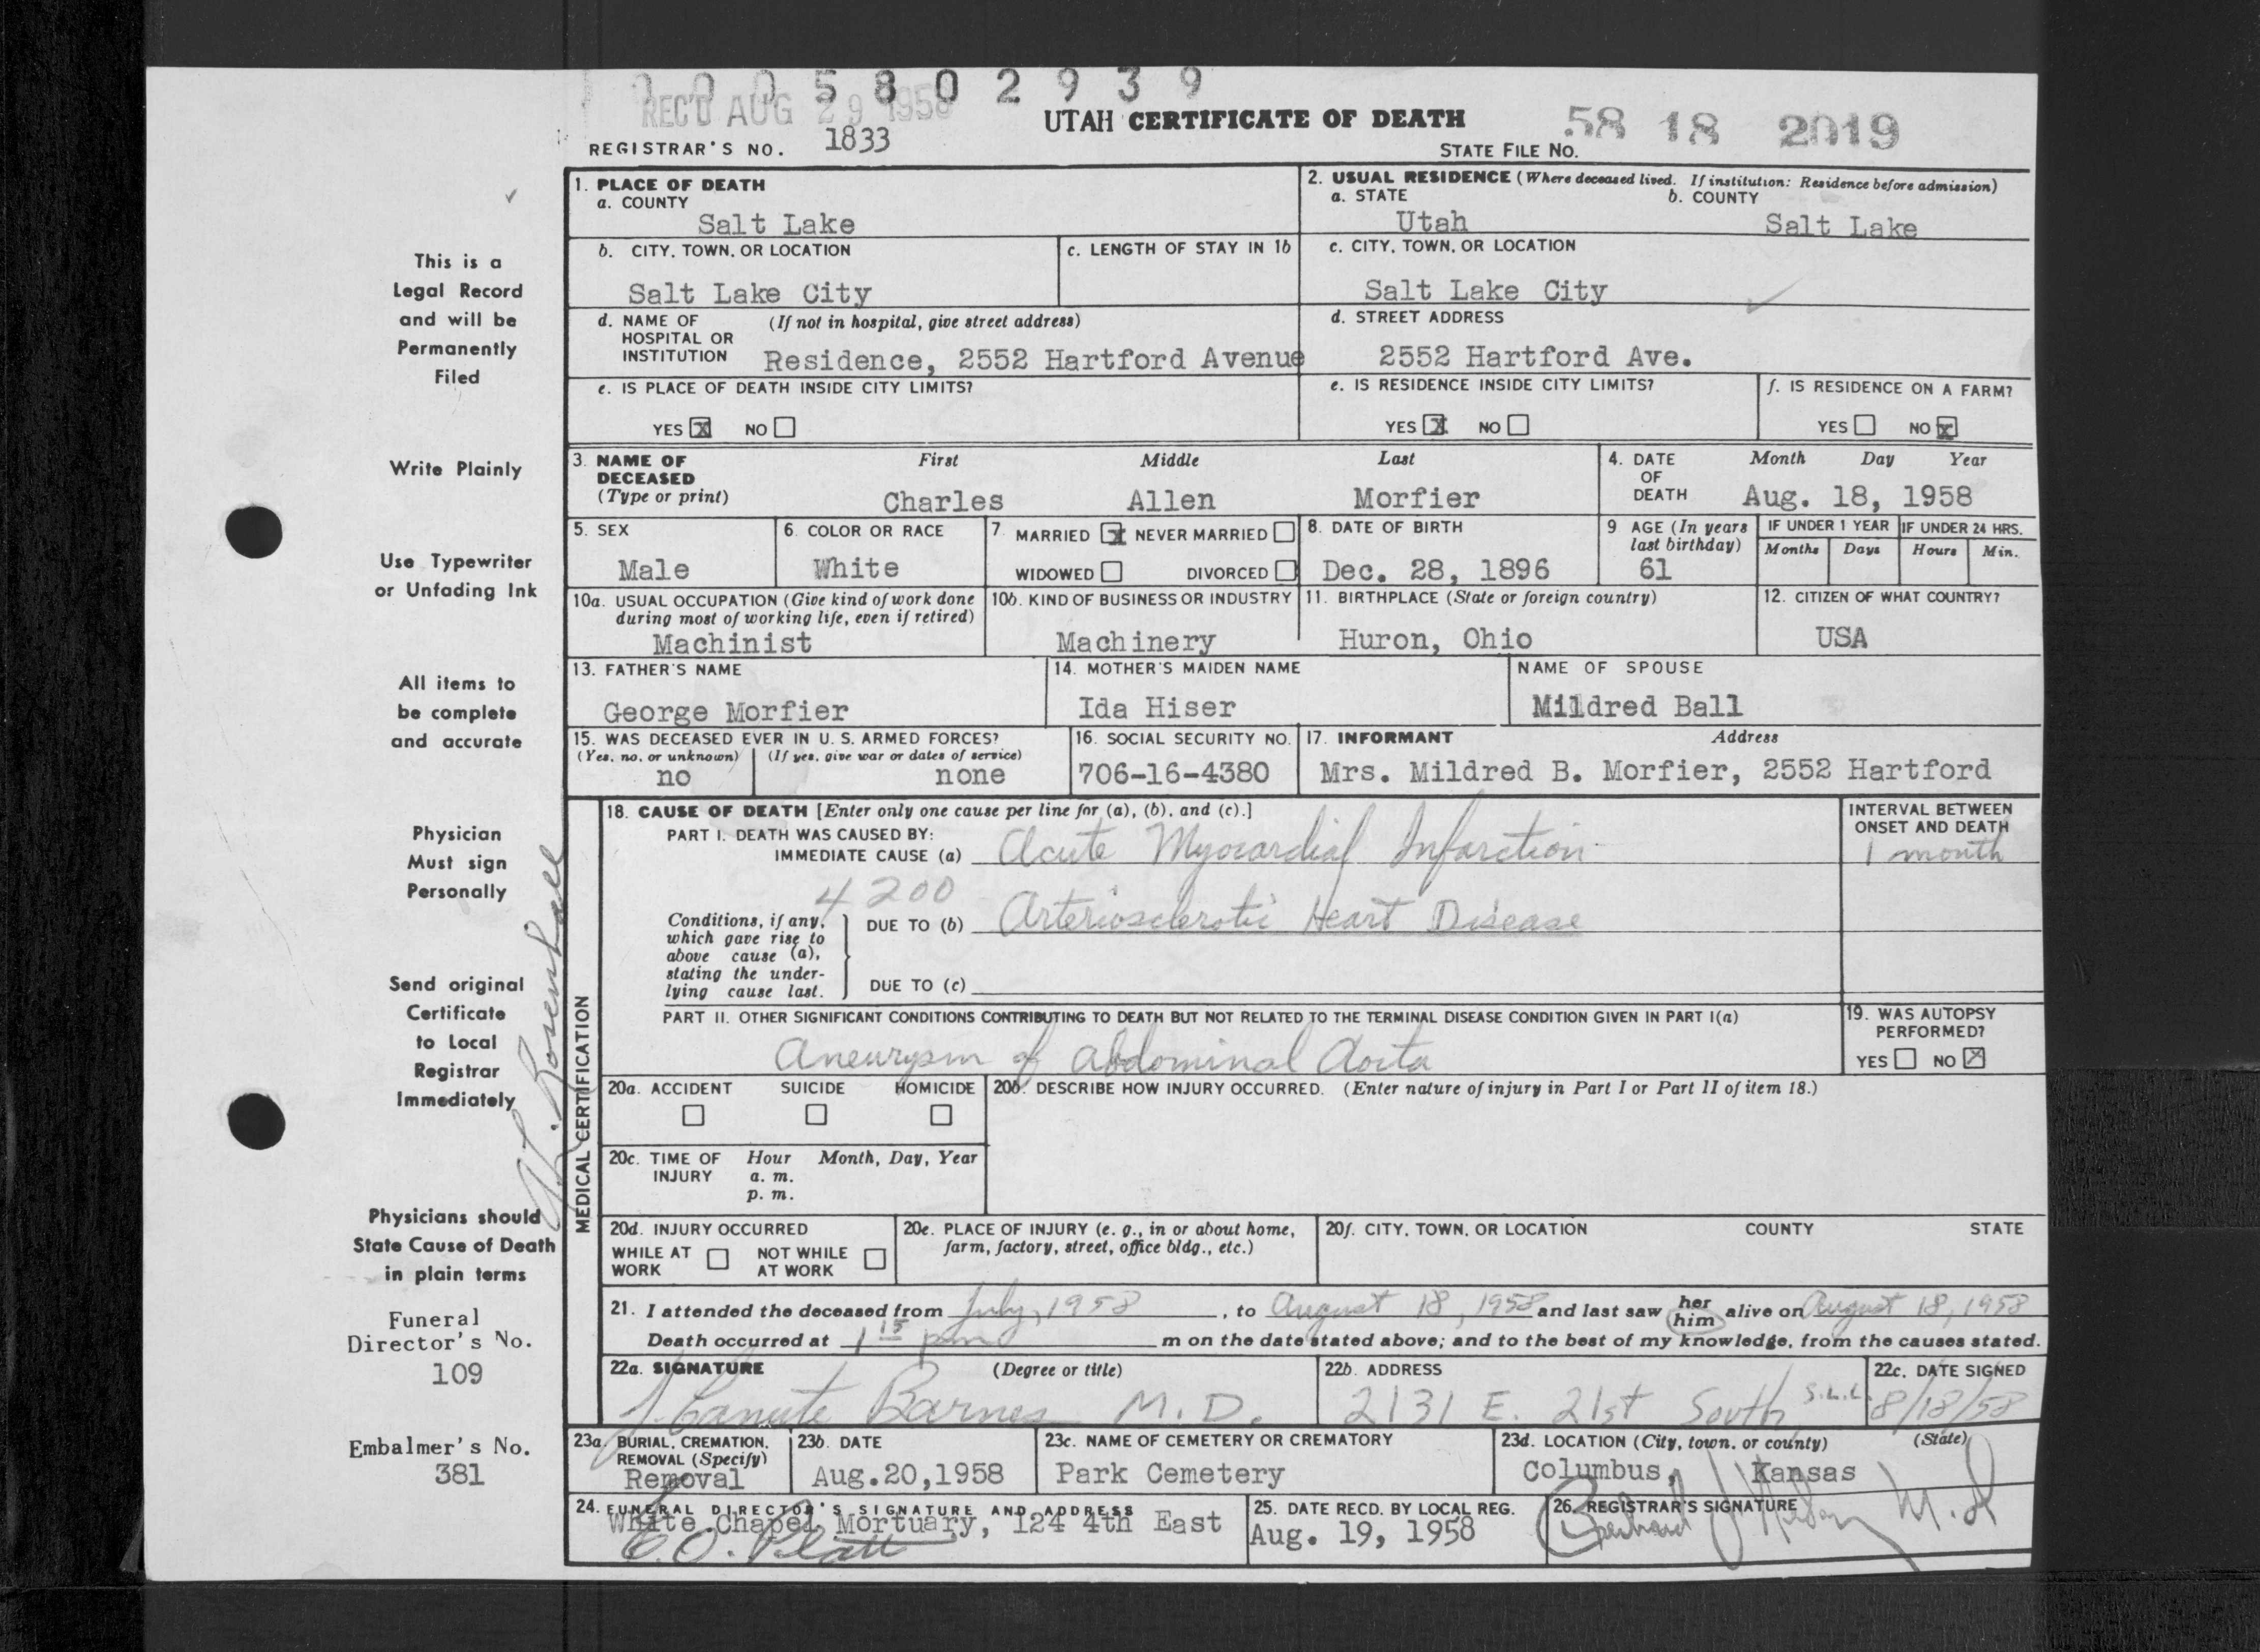 1 0 0 5 8 0 2 9 3 9
REC'D AUG 29 1958
UTAH CERTIFICATE OF DEATH
58 18 2019
REGISTRAR'S NO. 1833
STATE FILE NO.
1. PLACE OF DEATH
a. COUNTY
Salt Lake
2. USUAL RESIDENCE (Where deceased lived. If institution: Residence before admission)
a. STATE b. COUNTY
Utah Salt Lake
b. CITY, TOWN, OR LOCATION
Salt Lake City
c. LENGTH OF STAY IN 1b
c. CITY, TOWN, OR LOCATION
Salt Lake City
d. NAME OF HOSPITAL OR INSTITUTION (If not in hospital, give street address)
Residence, 2552 Hartford Avenue
d. STREET ADDRESS
2552 Hartford Ave.
e. IS PLACE OF DEATH INSIDE CITY LIMITS?
YES X NO
e. IS RESIDENCE INSIDE CITY LIMITS?
YES X NO
f. IS RESIDENCE ON A FARM?
YES NO X
3. NAME OF DECEASED (Type or print)
First Middle Last
Charles Allen Morfier
4. DATE OF DEATH
Month Day Year
Aug. 18, 1958
5. SEX
Male
6. COLOR OR RACE
White
7. MARRIED X NEVER MARRIED
WIDOWED DIVORCED
8. DATE OF BIRTH
Dec. 28, 1896
9 AGE (In years last birthday)
61
IF UNDER 1 YEAR
Months Days
IF UNDER 24 HRS.
Hours Min.
10a. USUAL OCCUPATION (Give kind of work done during most of working life, even if retired)
Machinist
10b. KIND OF BUSINESS OR INDUSTRY
Machinery
11. BIRTHPLACE (State or foreign country)
Huron, Ohio
12. CITIZEN OF WHAT COUNTRY?
USA
13. FATHER'S NAME
George Morfier
14. MOTHER'S MAIDEN NAME
Ida Hiser
NAME OF SPOUSE
Mildred Ball
15. WAS DECEASED EVER IN U. S. ARMED FORCES?
(Yes, no, or unknown) (If yes, give war or dates of service)
no none
16. SOCIAL SECURITY NO.
706-16-4380
17. INFORMANT Address
Mrs. Mildred B. Morfier, 2552 Hartford
MEDICAL CERTIFICATION
18. CAUSE OF DEATH [Enter only one cause per line for (a), (b), and (c).]
PART I. DEATH WAS CAUSED BY:
IMMEDIATE CAUSE (a) Acute Myocardial Infarction
INTERVAL BETWEEN ONSET AND DEATH
1 month
4200
Conditions, if any, which gave rise to above cause (a), stating the underlying cause last.
DUE TO (b) Arteriosclerotic Heart Disease
DUE TO (c)
PART II. OTHER SIGNIFICANT CONDITIONS CONTRIBUTING TO DEATH BUT NOT RELATED TO THE TERMINAL DISEASE CONDITION GIVEN IN PART I(a)
Aneurysm of abdominal Aorta
19. WAS AUTOPSY PERFORMED?
YES NO X
20a. ACCIDENT SUICIDE HOMICIDE
20b. DESCRIBE HOW INJURY OCCURRED. (Enter nature of injury in Part I or Part II of item 18.)
20c. TIME OF INJURY Hour Month, Day, Year
a. m.
p. m.
20d. INJURY OCCURRED
WHILE AT WORK NOT WHILE AT WORK
20e. PLACE OF INJURY (e. g., in or about home, farm, factory, street, office bldg., etc.)
20f. CITY, TOWN, OR LOCATION COUNTY STATE
21. I attended the deceased from July, 1958, to August 18, 1958 and last saw her him alive on August 18, 1958
Death occurred at 1 15 pm m on the date stated above; and to the best of my knowledge, from the causes stated.
22a. SIGNATURE (Degree or title)
J. Canute Barnes M.D.
22b. ADDRESS
2131 E. 21st South S.L.C.
22c. DATE SIGNED
8/18/58
23a. BURIAL, CREMATION, REMOVAL (Specify)
Removal
23b. DATE
Aug.20,1958
23c. NAME OF CEMETERY OR CREMATORY
Park Cemetery
23d. LOCATION (City, town, or county) (State)
Columbus, Kansas
24. FUNERAL DIRECTOR'S SIGNATURE AND ADDRESS
White Chapel Mortuary, 124 4th East
E.O. Platt
25. DATE RECD. BY LOCAL REG.
Aug. 19, 1958
26. REGISTRAR'S SIGNATURE
M.D
This is a
Legal Record
and will be
Permanently
Filed
Write Plainly
Use Typewriter
or Unfading Ink
All items to
be complete
and accurate
Physician
Must sign
Personally
Send original
Certificate
to Local
Registrar
Immediately
Physicians should
State Cause of Death
in plain terms
Funeral
Director's No.
109
Embalmer's No.
381